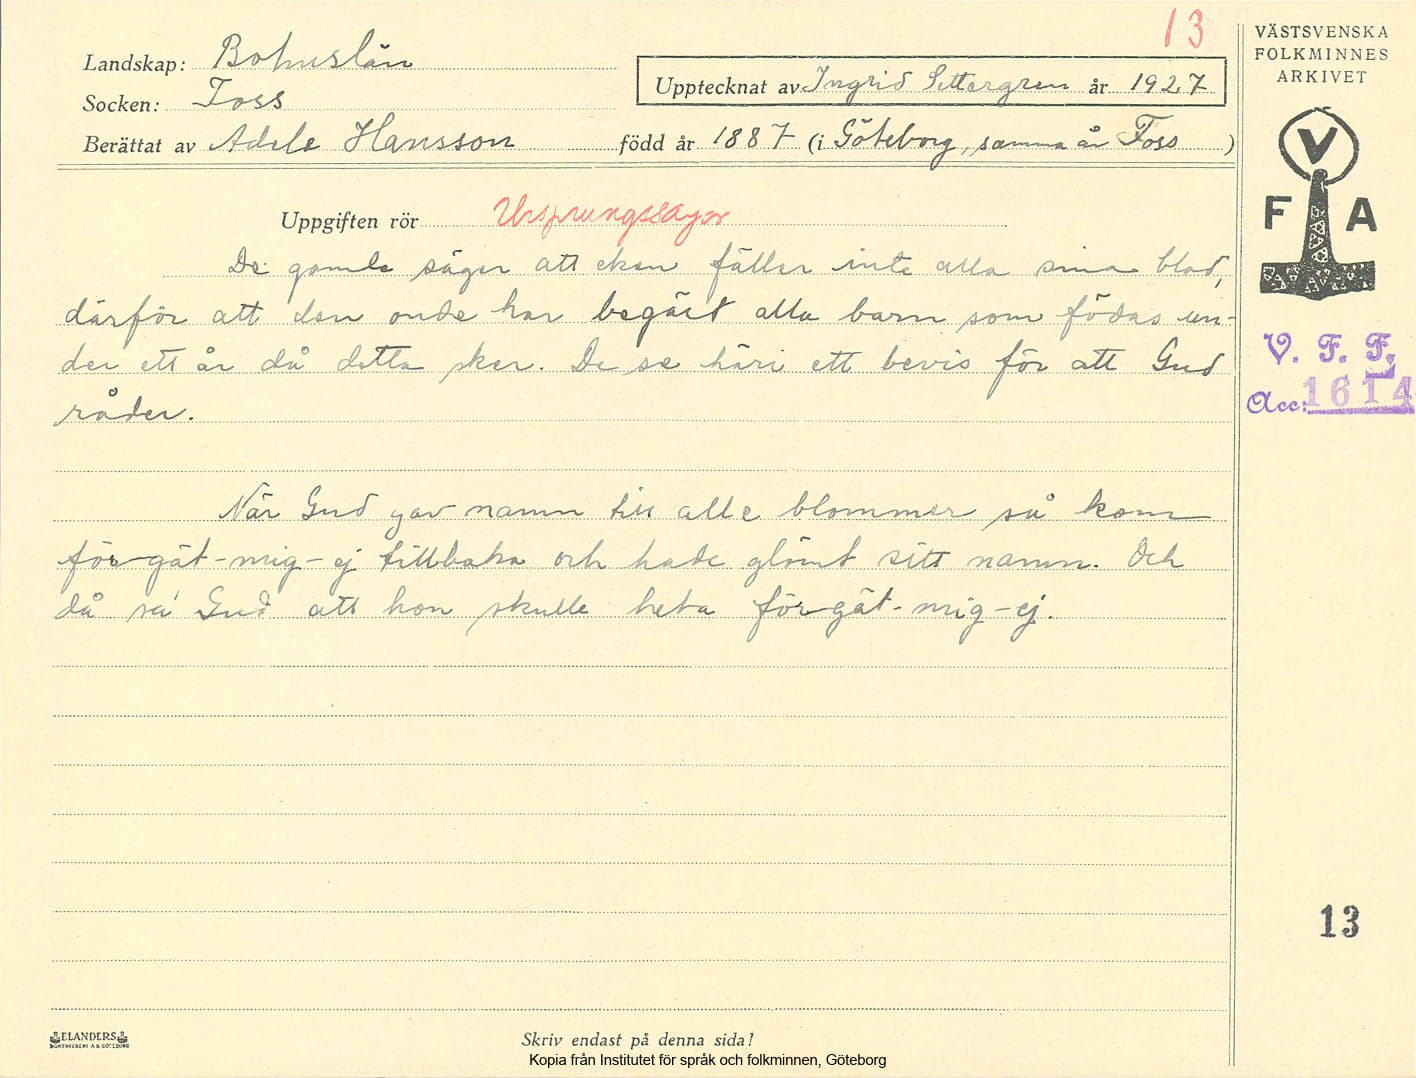 13
Landskap: Bohuslän
Socken: Foss
Upptecknat av Ingrid Settergren år 1927
Berättat av Adele Hansson född år 1887 (i Göteborg, samma år Foss )
Uppgiften rör Ursprungssagor
De gamle säger att eken fäller inte alla sina blad,
därför att den onde har begärt alla barn som födas un-
der ett år då detta sker. De se häri ett bevis för att Gud
råder.
När Gud gav namn till alle blommer så kom
för-gät-mig-ej tillbaka och hade glömt sitt namn. Och
då sa' Gud att hon skulle heta för-gät-mig-ej.
VÄSTSVENSKA
FOLKMINNES
ARKIVET
V
F A
V. F. F.
Acc: 1614
13
ELANDERS
BOKTRYCKERI A.B. GÖTEBORG
Skriv endast på denna sida!
Kopia från Institutet för språk och folkminnen, Göteborg